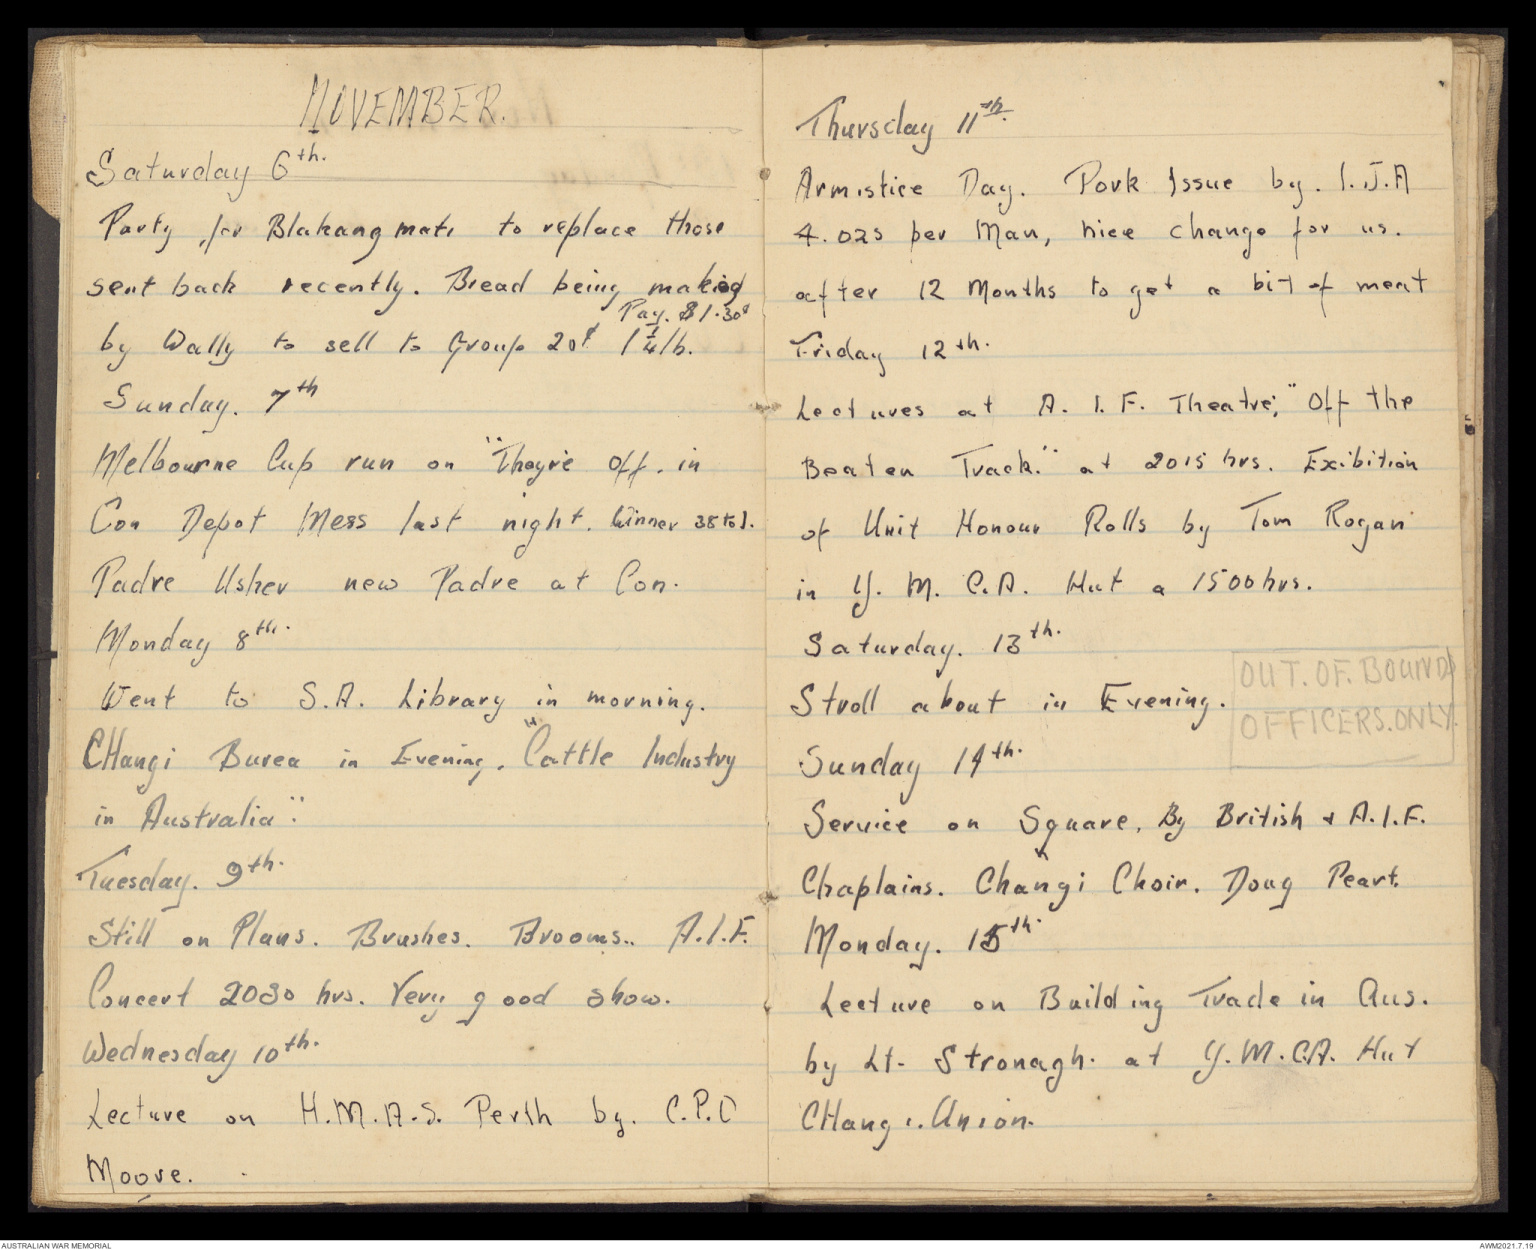 NOVEMBER.
Saturday 6th.
Party for Blakang mati to replace those
sent back recently. Bread being making
Pay. $1.30¢
by Wally to sell to Group 20¢ 1 1/4 lb.
Sunday. 7th
Melbourne Cup run on "Theyre Off. in
Con Depot Mess last night. Winner 38 to 1.
Padre Usher new Padre at Con.
Monday 8th.
Went to S.A. Library in morning.
CHangi Burea in Evening. "Cattle Industry
in Australia".
Tuesday. 9th.
Still on Plans. Brushes. Brooms.. A.I.F.
Concert 2030 hrs. Very good show.
Wednesday 10th.
Lecture on H.M.A.S. Perth by. C.P.O
Moore.
Thursday 11th.
Armistice Day. Pork Issue by. I.J.A
4.ozs per Man, nice change for us.
after 12 Months to get a bit of meat
Friday 12th.
Lectures at A.I.F. Theatre; "Off the
Beaten Track." at 2015 hrs. Exibition
of Unit Honour Rolls by Tom Rogan
in Y.M.C.A. Hut a 1500 hrs.
Saturday. 13th.
Stroll about in Evening.
OUT.OF.BOUND
OFFICERS.ONLY.
Sunday 14th.
Service on Square, By British & A.I.F.
Chaplains. Changi Choir. Doug Peart.
Monday. 15th.
Lecture on Building Trade in Aus.
by Lt. Stronagh. at Y.M.C.A. Hut
CHangi. Union.
AUSTRALIAN WAR MEMORIAL
AWM2021.7.19